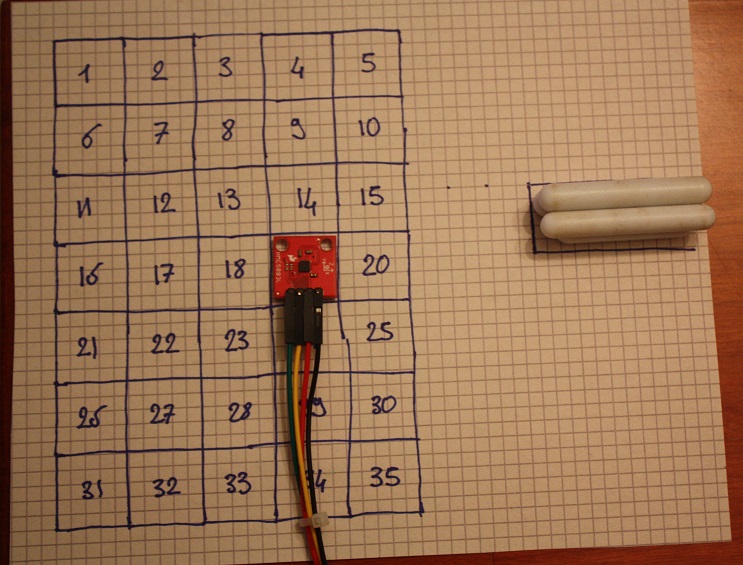 1 2 3 4 5
6 7 8 9 10
11 12 13 14 15
16 17 18 20
21 22 23 25
26 27 28 29 30
31 32 33 34 35